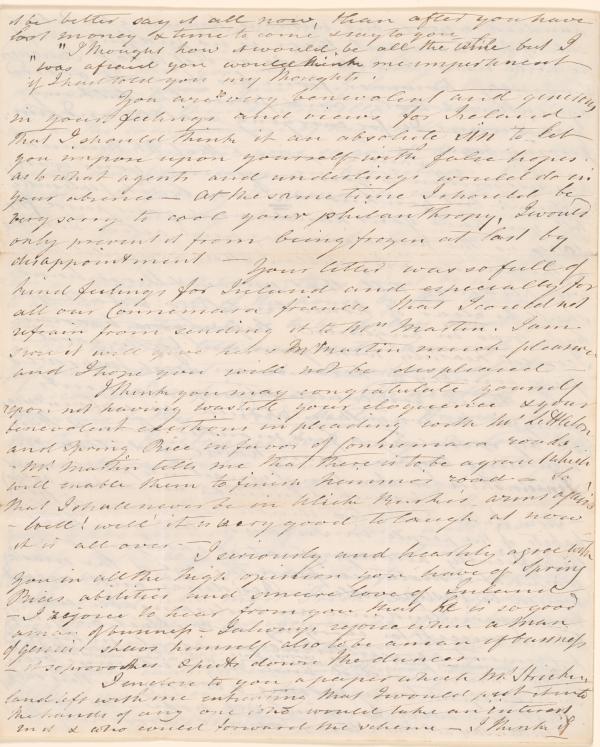 it be better say it all now, than after you have
lost money & time to come & say to you
"I thought how it would be all the while but I
"was afraid you would think me impertinent
if I had told you my thoughts."
You are so very benevolent and generous
in your feelings and views for Ireland
that I should think it an absolute sin to let
you impose upon yourself with false hopes
as to what agents and underlings would do in
your absence — At the same time I should be
very sorry to cool your philanthropy, I would
only prevent it from being frozen at last by
disappointment —
Your letter was so full of
kind feelings for Ireland and especially for
all our Connemara friends that I could not
refrain from sending it to Mrs Martin. I am
sure it will give her & Mr Martin much pleasure
and I hope you will not be displeased —
I think you may congratulate yourself
upon not having wasted your eloquence & your
benevolent exertions in pleading with Mr Littleton
and Spring Rice in favor of Connemara roads.
Mrs Martin tells me that there is to be a grant which
will enable them to finish Nemmos road — So
that I shall never be in Ulick Burke's arms again
— Well! well! it is very good to laugh at now
it is all over —
I seriously and heartily agree with
you in all the high opinion you have of Spring
Rices abilities and sincere love of Ireland
— I rejoice to hear from you that he is so good
a man of business — I always rejoice when a man
of genius shews himself also to be a man of business
— it reproaches & puts down the dunces.
I enclose to you a paper which Mr
land left with me entreating that I would put it into
the hands of any one who would take an interest
in it & who could forward the scheme — I think if